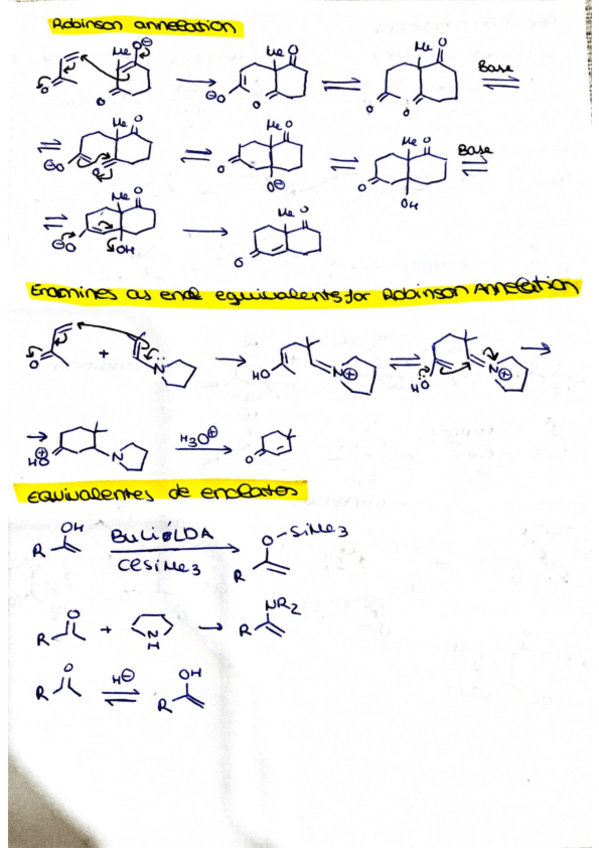 Robinson annelation
Me O⊖
O
O
Me O
⊖O O
Me O
O O
Base
Me O
⊖O O
Me O
O
O⊖
Me O
O
OH
Base
Me O
⊖O
OH
Me O
O
Enamines as enol equivalents for Robinson Annelation
O
+
N
HO
N⊕
HO
N⊕
HO⊕
N
H3O⊕
O
EQUIVALENTES de enolatos
OH
R
BuLi ó LDA
ClSiMe3
O-SiMe3
R
O
R
+
N
H
NR2
R
O
R
H⊖
OH
R